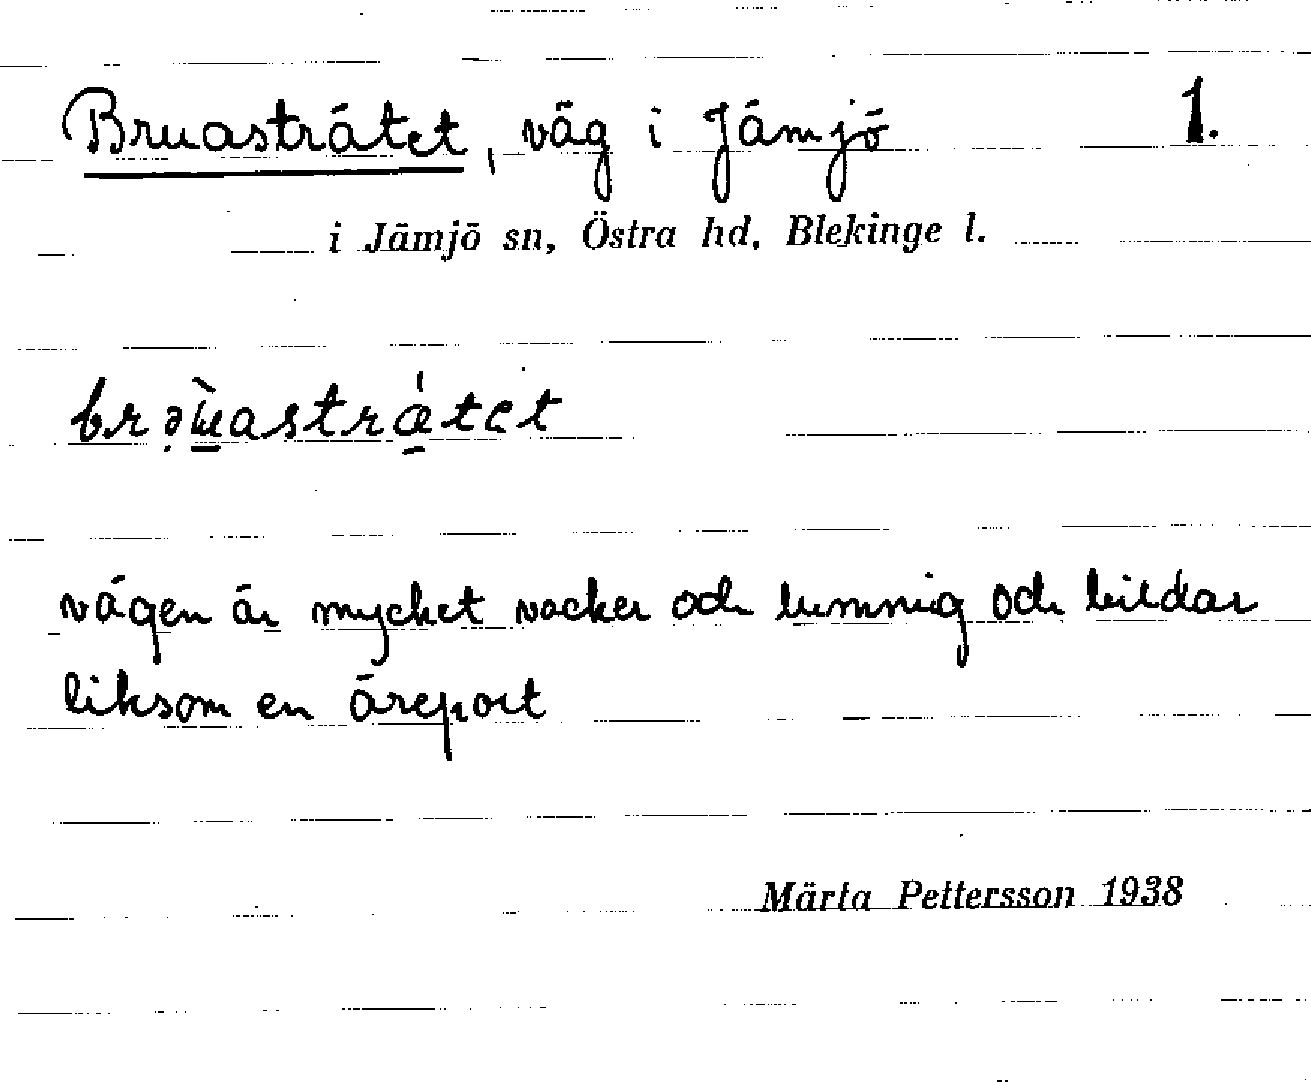 Bruasträtet, väg i Jämjö 1.
i Jämjö sn, Östra hd, Blekinge l.
brə̣ɯ̲̀astrǽ̲tet
vägen är mycket vacker och lummig och bildar
liksom en äreport
Märta Pettersson 1938